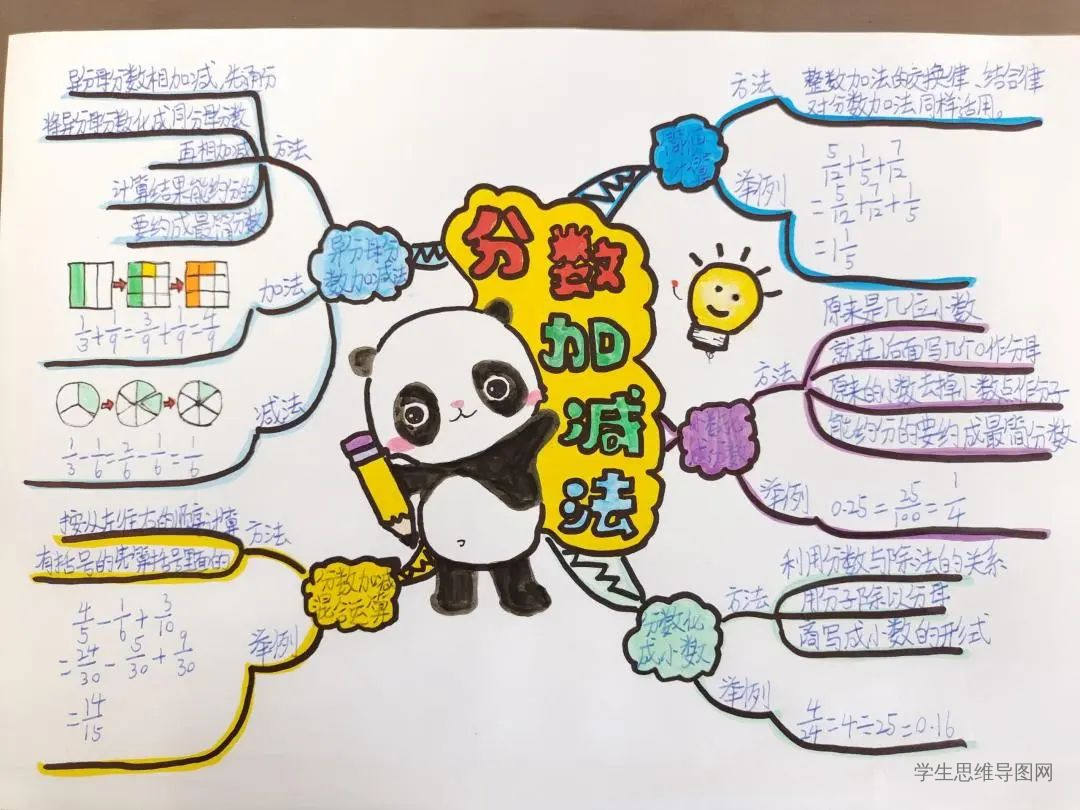 分数加减法
异分母分数加减法
方法
异分母分数相加减,先通份
将异分母分数化成同分母分数
再相加减
计算结果能约分的
要约成最简分数
加法
1/3+1/9=3/9+1/9=4/9
减法
1/3-1/6=2/6-1/6=1/6
分数加减
混合运算
方法
按从左往右的顺序计算
有括号的先算括号里面的
举例
4/5-1/6+3/10
=24/30-5/30+9/30
=14/15
简便
计算
方法
整数加法的交换律、结合律
对分数加法同样适用。
举例
5/12+1/5+7/12
=5/12+7/12+1/5
=1 1/5
方法
原来是几位小数
就在1后面写几个0作分母
原来的小数去掉小数点作分子
能约分的要约成最简分数
举例
0.25=25/100=1/4
分数化
成小数
方法
利用分数与除法的关系
用分子除以分母
商写成小数的形式
举例
4/24=4÷25=0.16
学生思维导图网